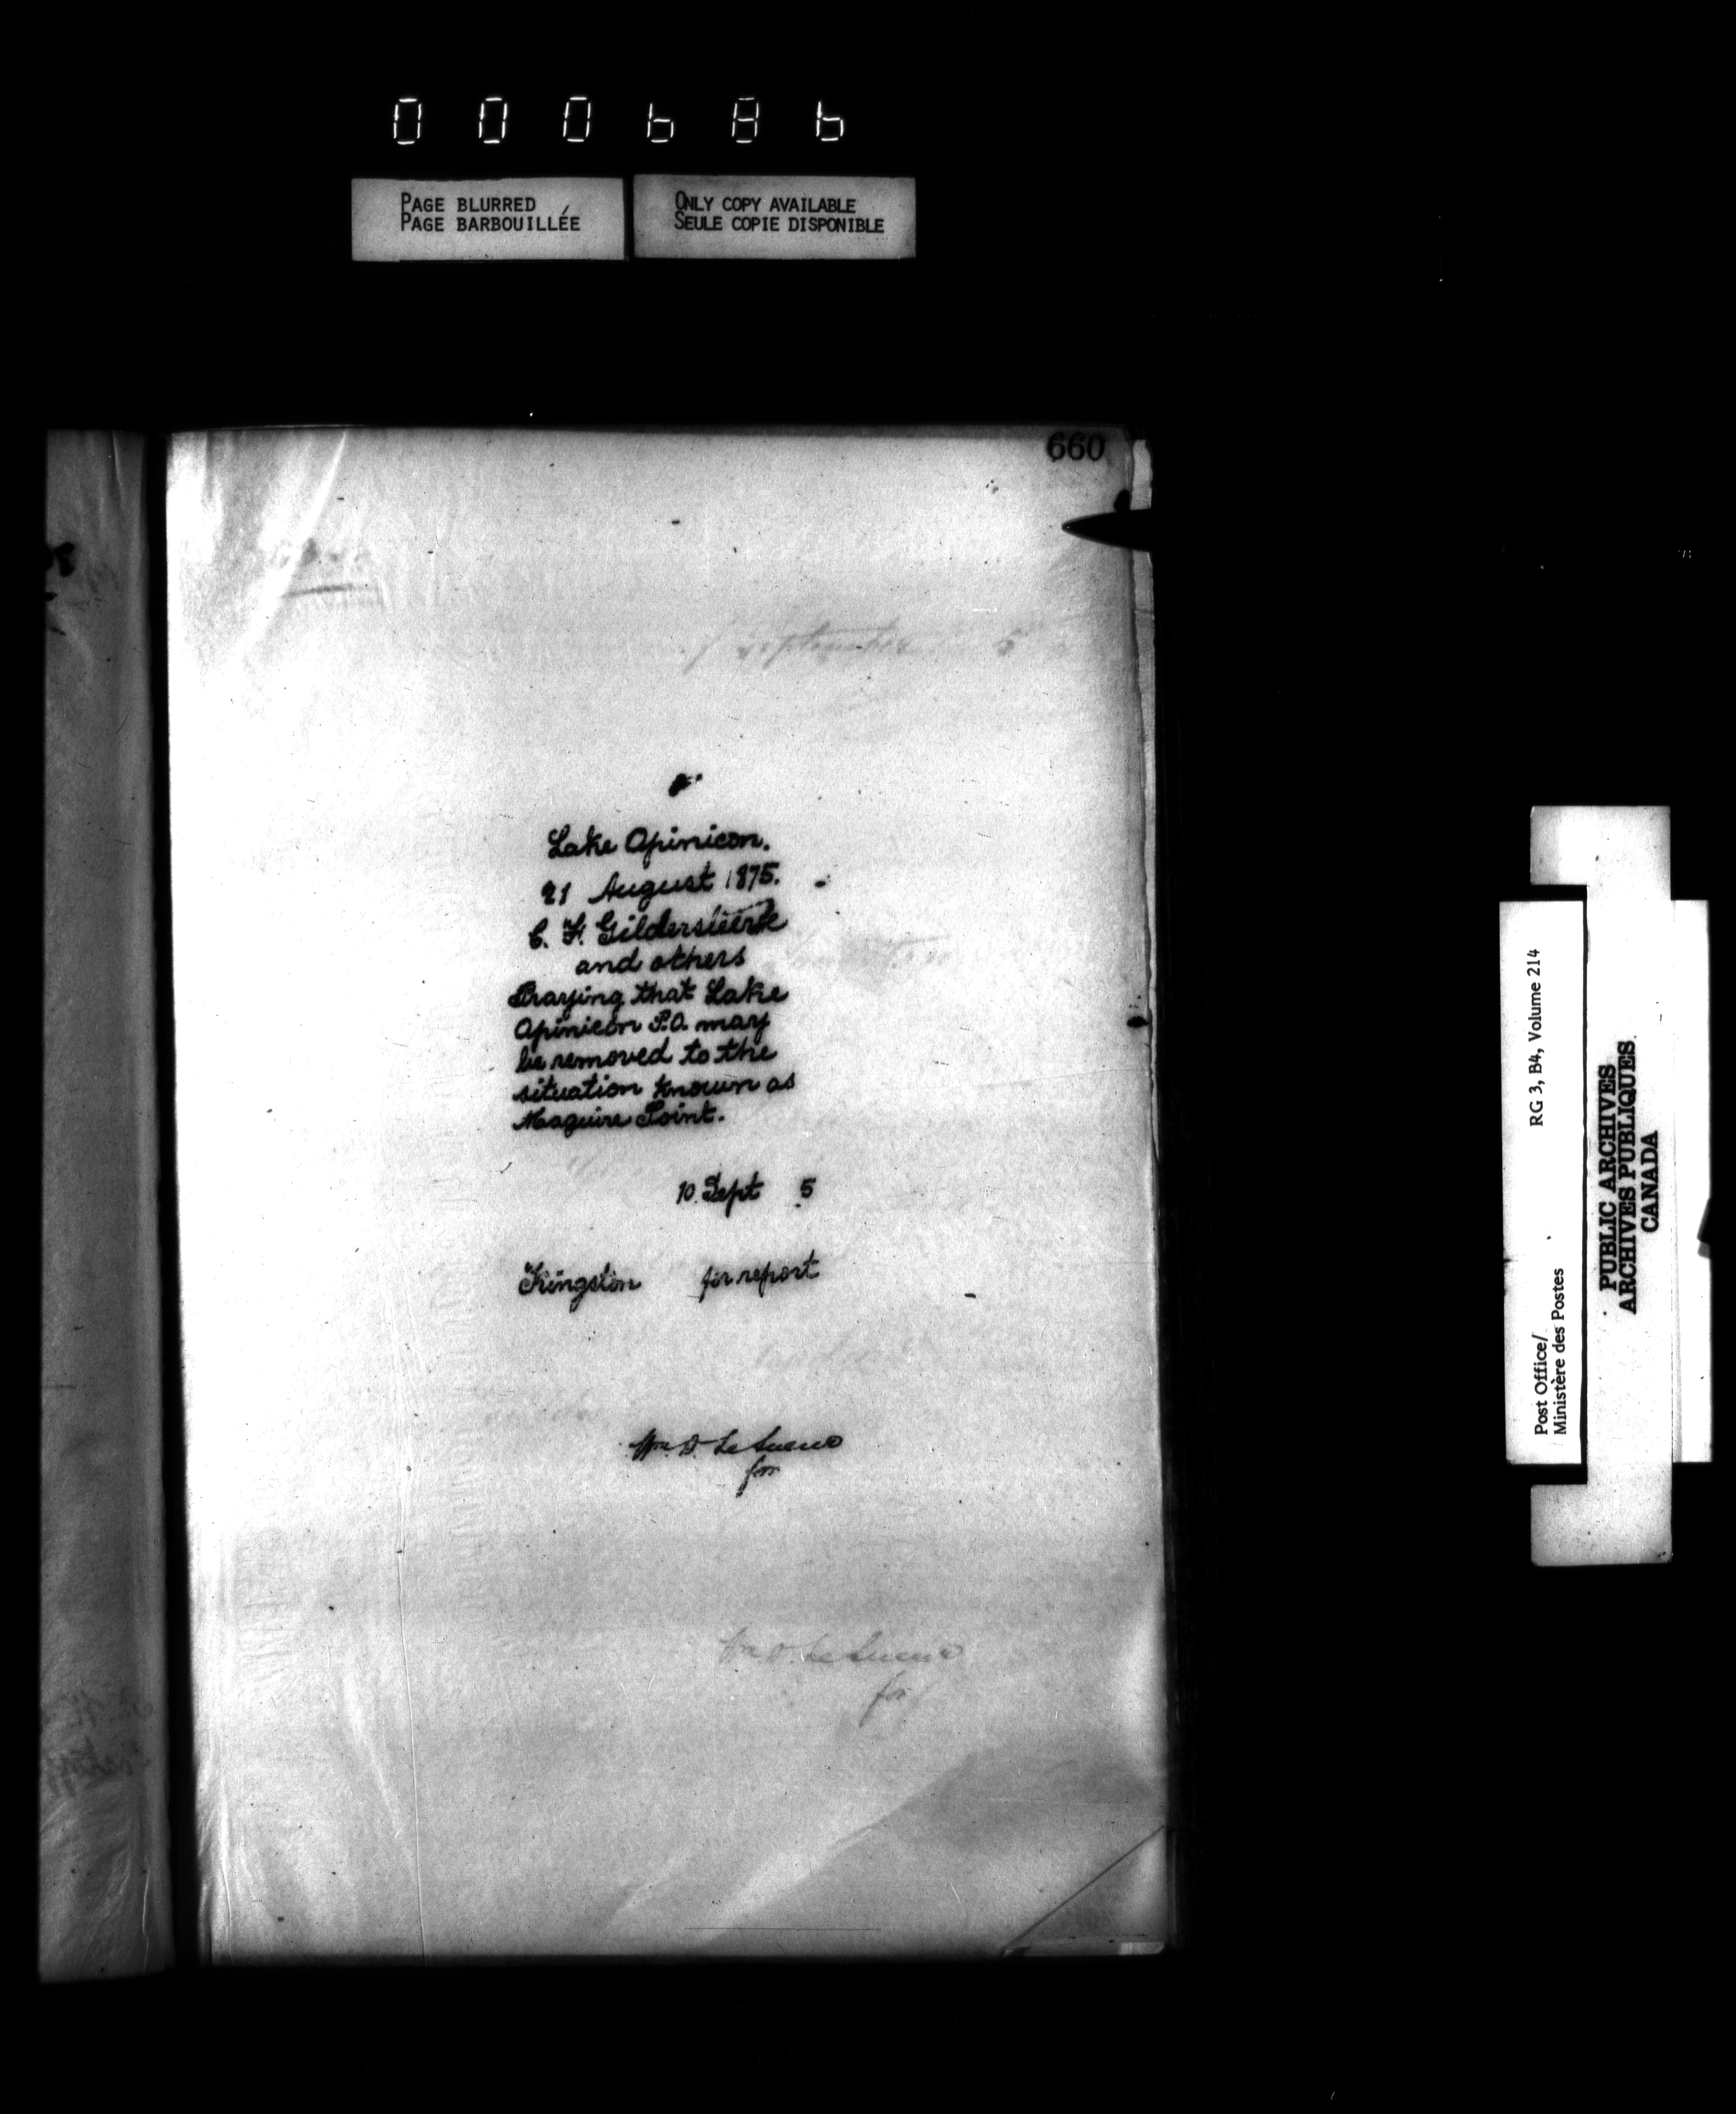 000686
PAGE BLURRED
PAGE BARBOUILLÉE
ONLY COPY AVAILABLE
SEULE COPIE DISPONIBLE
660
September 5
Lake Opinicon.
21 August 1875.
C. F. Gildersleeve
and others
Praying that Lake
Opinicon P.O. may
be removed to the
situation known as
Maguire Point.
10 Sept 5
Kingston for report
Wm. D. Le Sueur
for
Wm. D. Le Sueur
for
Post Office/
Ministère des Postes
RG 3, B4, Volume 214
PUBLIC ARCHIVES
ARCHIVES PUBLIQUES
CANADA